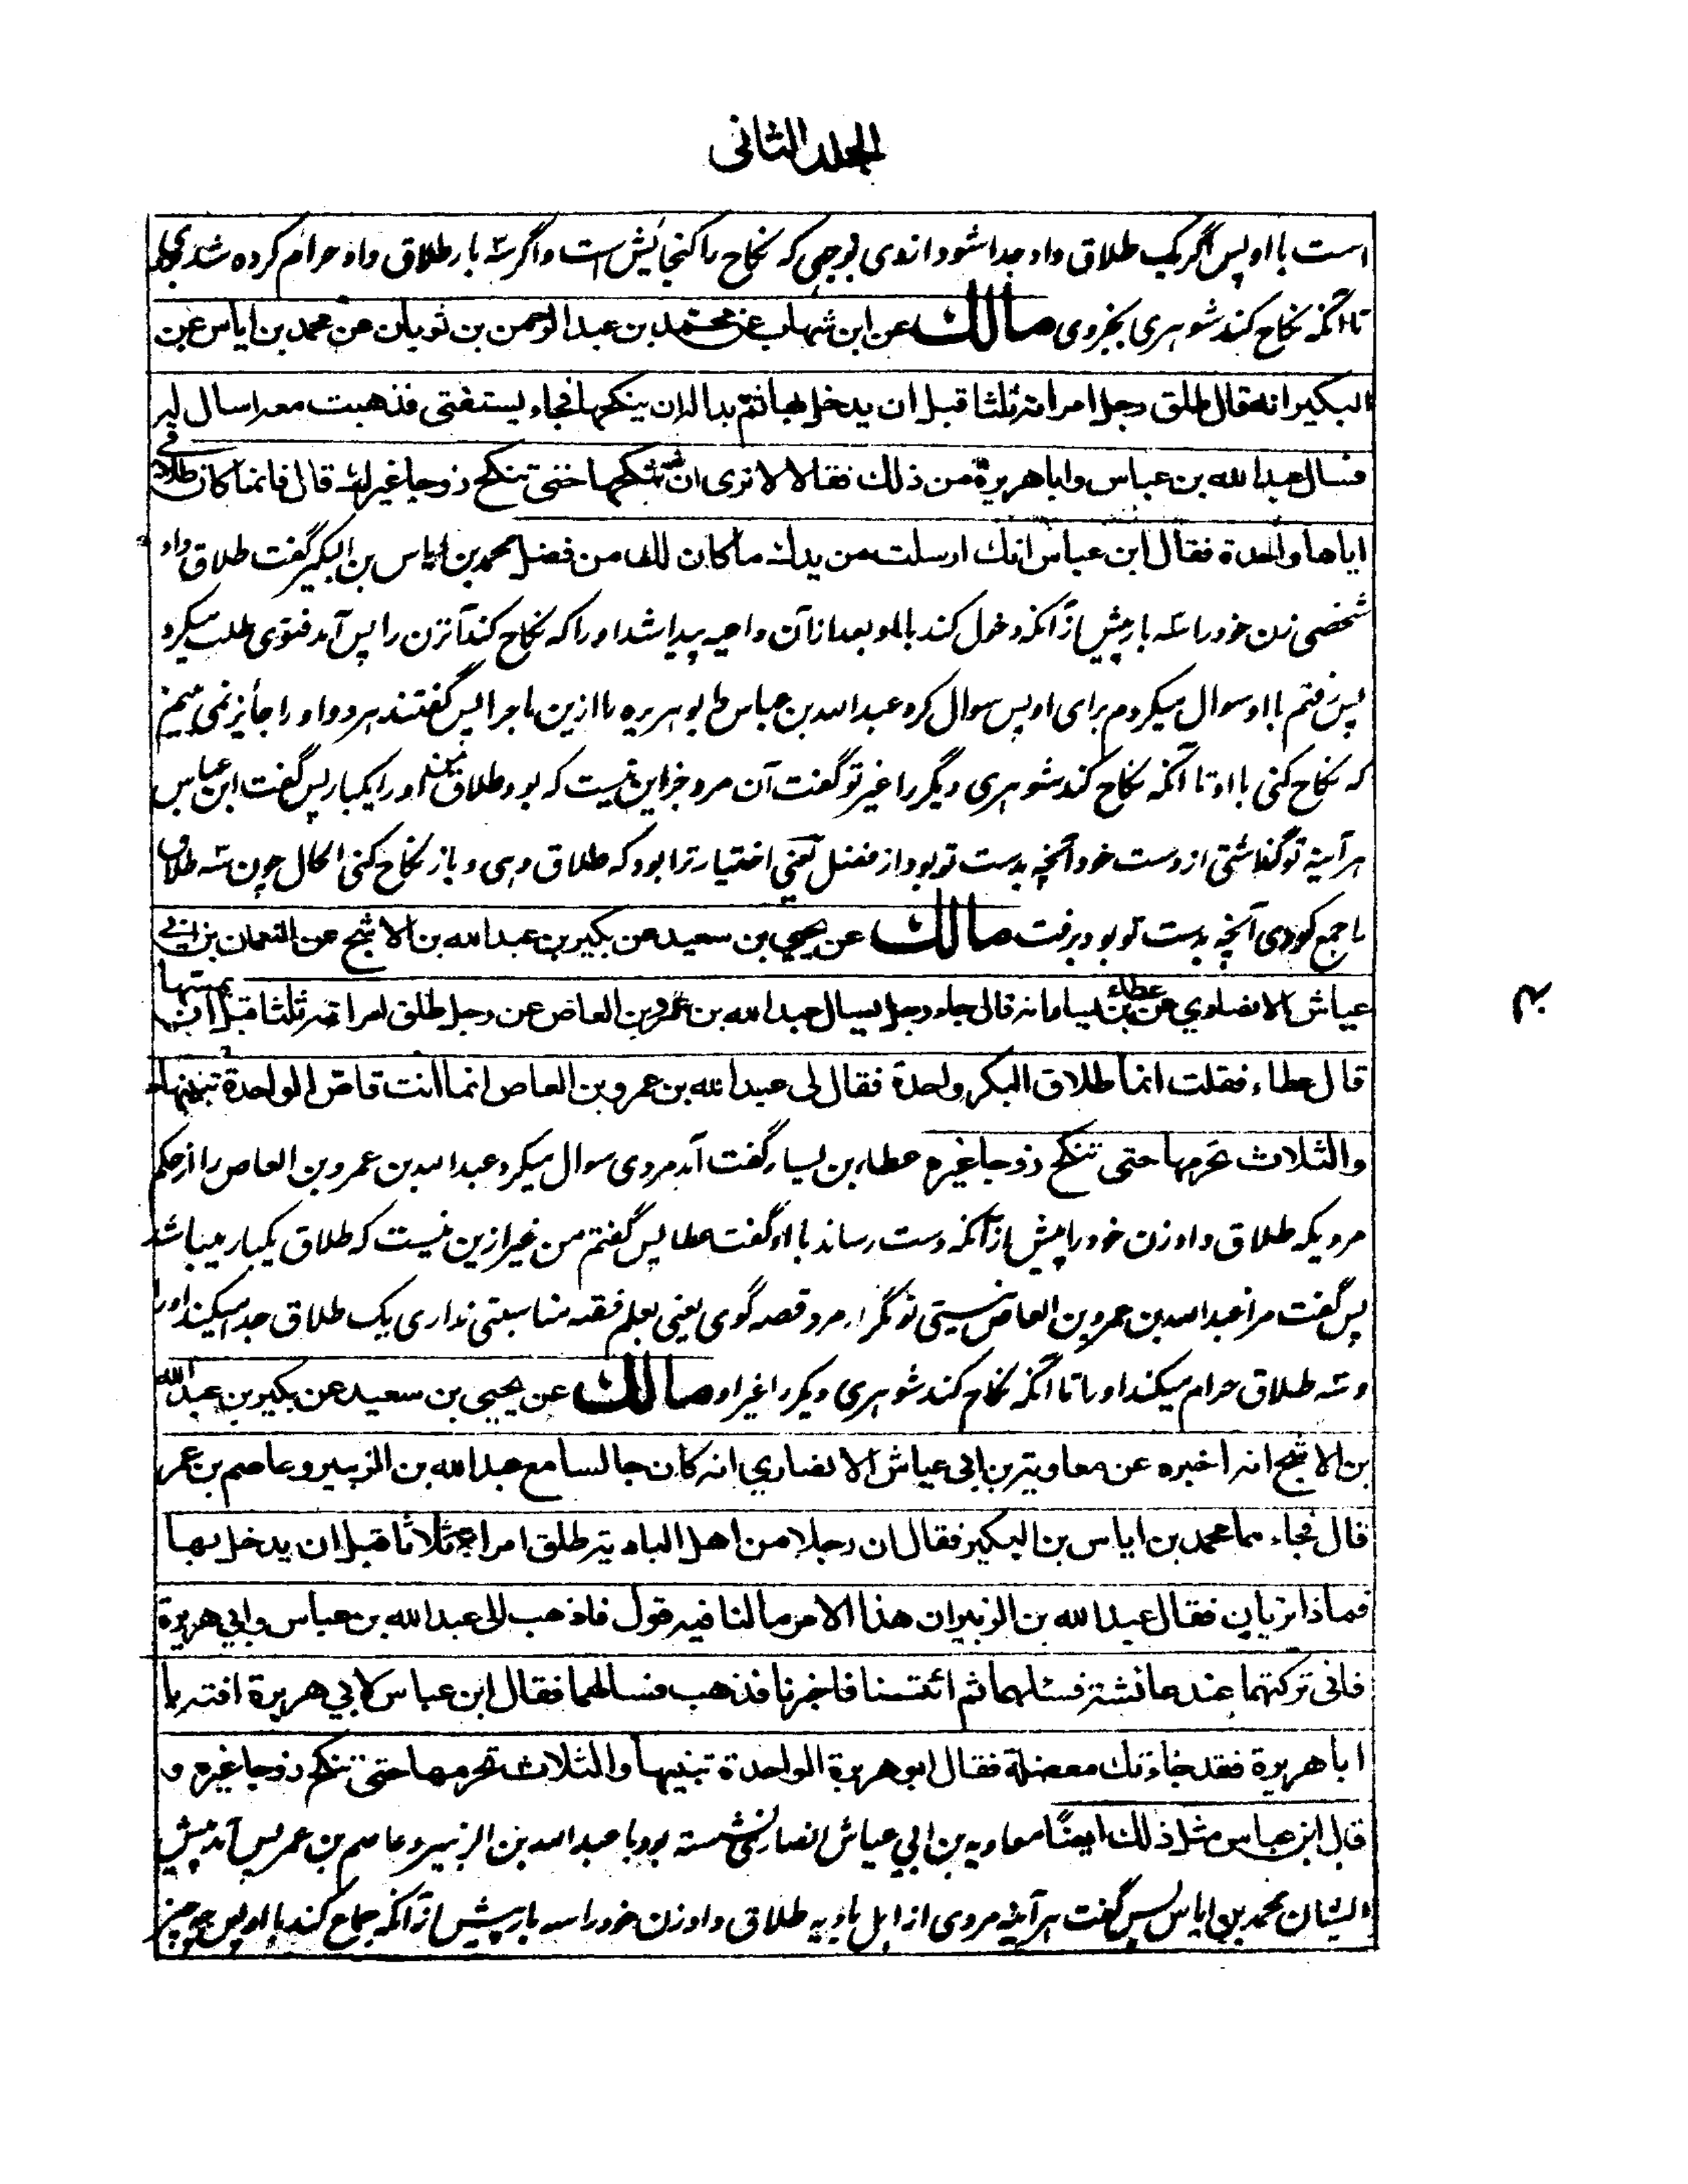 الجلد الثانی
است با او پس اگر یک طلاق داد جدا شود ازوی بوجهی که نکاح را گنجایش است واگر سّه بار طلاق داد حرام کرده شد
تا آنکه نکاح کند شوهری بجز وی مالك عن ابن شهاب عن محمد بن عبد الرحمن بن ثوبان عن محمد بن اياس بن
البكير انه قال طلق رجل امراته ثلثا قبل ان يدخل بها ثم بدا له ان ينكحها فجاء يستفتى فذهبت معه اسال له
فسال عبد الله بن عباس وابا هريرة من ذلك فقالا لا نرى ان تنكحها حتى تنكح زوجا غيرك قال فانما كان طلاقى
اياها واحدة فقال ابن عباس انك ارسلت من يدك ما كان لك من فضل محمد بن ایاس بن البکیر گفت طلاق داد
شخصی زن خود را سّه بار پیش از آنکه دخول کند با او بعد ازان داعیه پیدا شد او را که نکاح کند آنزن را پس آمد فتوی طلب میکرد
پس رفتم با او سوال میکردم برای او پس سوال کرد عبد الله بن عباس و ابو هریره را ازین ماجرا پس گفتند هر دو او را جائز نمی بینیم
که نکاح کنی با او تا آنکه نکاح کند شوهری دیگر را غیر تو گفت آن مرد جز این نیست که بود طلاق من او را یکبار پس گفت ابن عباس
هر آینه تو گذاشتی از دست خود آنچه بدست تو بود از فضل یعنی اختیار ترا بود که طلاق دهی و باز نکاح کنی الحال چون سّه طلاق
را جمع کردی آنچه بدست تو بود برفت مالك عن يحيى بن سعيد عن بكير بن عبد الله بن الاشج عن النعمان بن ابي
عياش الانصاري عن عطاء بن يسار انه قال جاء رجل يسال عبد الله بن عمرو بن العاص عن رجل طلق امراته ثلثا قبل ان يمسها
قال عطاء فقلت انما طلاق البكر واحدة فقال لى عبد الله بن عمرو بن العاص انما انت قاصّ الواحدة تبينها
والثلاث تحرمها حتى تنكح زوجا غيره عطاء بن یسار گفت آمد مردی سوال میکرد عبد الله بن عمرو بن العاص را از حکم
مردیکه طلاق داد زن خود را پیش از آنکه دست رساند با او گفت عطا پس گفتم من غیر ازین نیست که طلاق یکبار میباشد
پس گفت مرا عبد الله بن عمرو بن العاص نیستی تو مگر مرد قصه گوی یعنی بعلم فقه مناسبتی نداری یک طلاق جدا میکند او را
و سّه طلاق حرام میکند او را تا آنکه نکاح کند شوهری دیگر را غیر او مالك عن يحيى بن سعيد عن بكير بن عبد الله
بن الاشج انه اخبره عن معاوية بن ابى عياش الانصاري انه كان جالسا مع عبد الله بن الزبير و عاصم بن عمر
قال فجاءهما محمد بن اياس بن البكير فقال ان رجلا من اهل البادية طلق امراته ثلاثا قبل ان يدخل بها
فماذا تريان فقال عبد الله بن الزبير ان هذا الامر ما لنا فيه قول فاذهب الى عبد الله بن عباس وابي هريرة
فانى تركتهما عند عائشة فسئلهما ثم ائتنا فاخبرنا فذهب فسالهما فقال ابن عباس لابي هريرة افته يا
ابا هريرة فقد جاءتك معضلة فقال ابو هريرة الواحدة تبينها والثلاث تحرمها حتى تنكح زوجا غيره و
قال ابن عباس مثل ذلك ايضًا معاویه بن ابی عیاش انصاری نشسته بود با عبد الله بن الزبیر و عاصم بن عمر پس آمد پیش
ایشان محمد بن ایاس پس گفت هر آینه مردی از اهل بادیه طلاق داد زن خود را سه بار پیش از آنکه جماع کند با او پس چه چیز